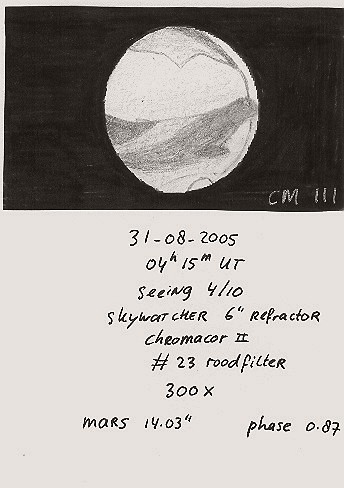 CM 111
31-08-2005
04h 15m UT
seeing 4/10
SkyWATCHER 6" Refractor
Chromacor II
# 23 roodfilter
300x
mars 14.03" phase 0.87